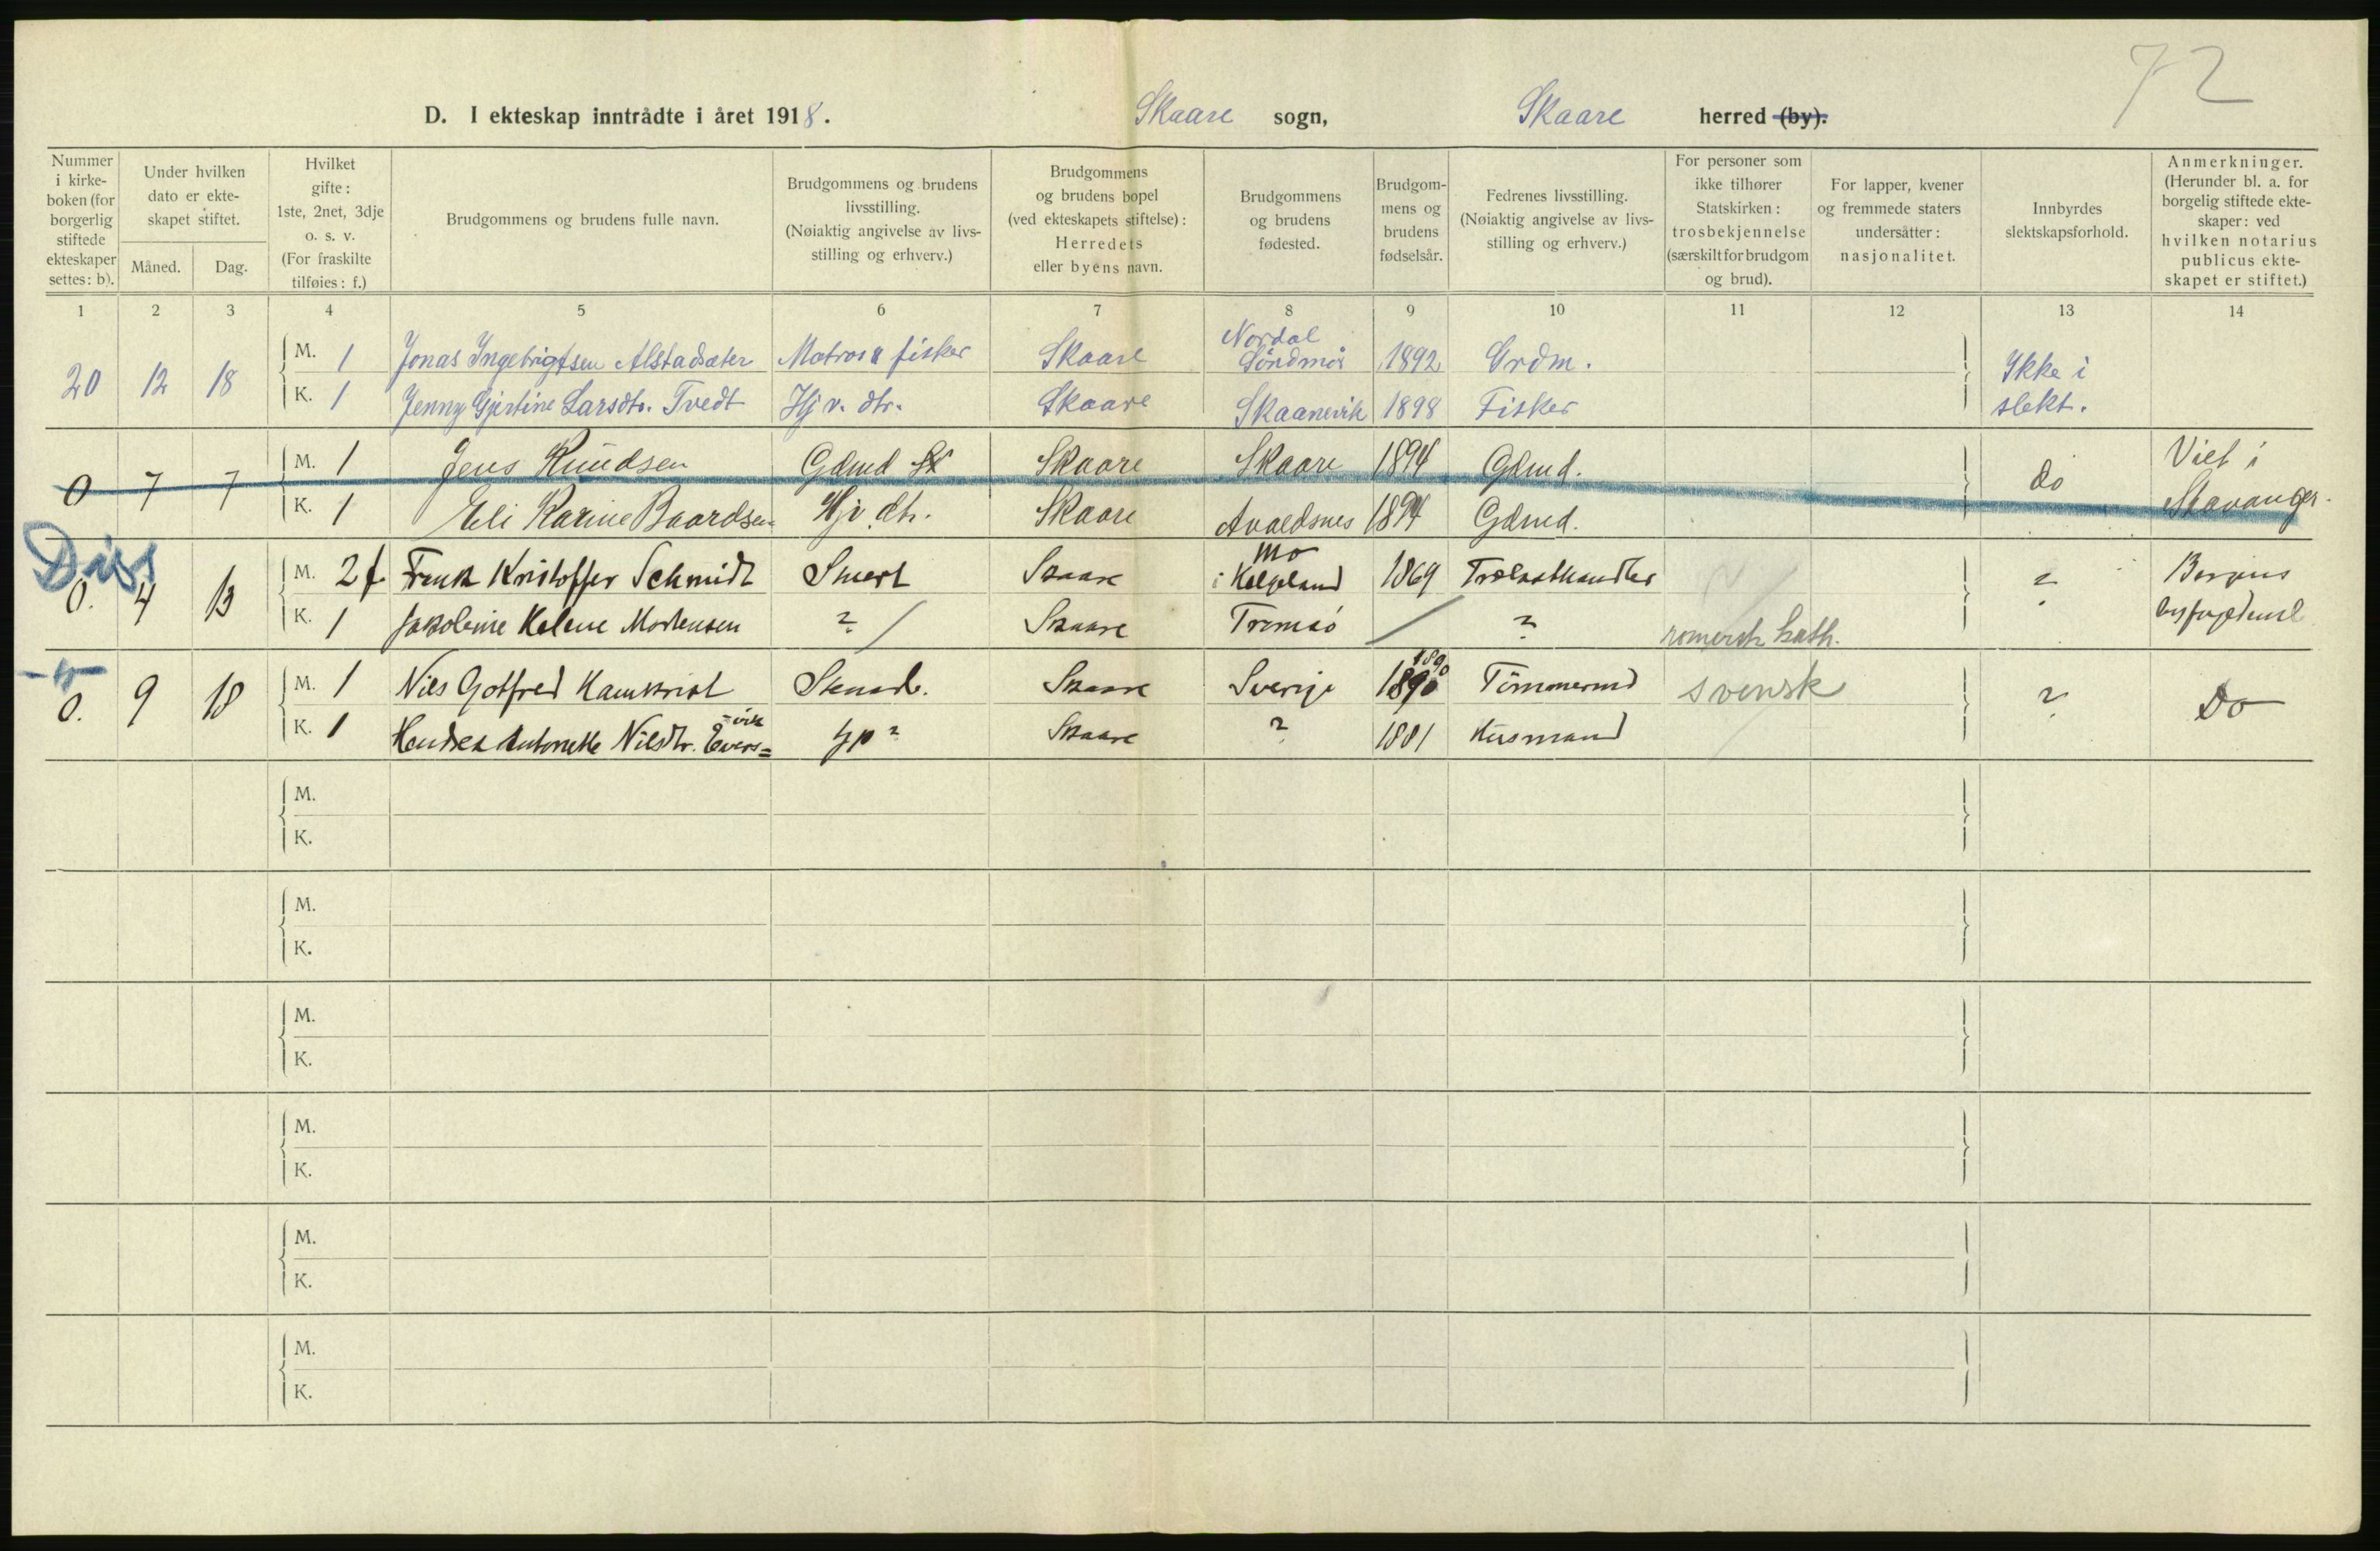 72
D. I ekteskap inntrådte i året 1918. Skaare sogn, Skaare herred (by).
Nummer i kirke-boken (for borgerlig stiftede ekteskaper settes: b).
Under hvilken dato er ekte-skapet stiftet.
Måned. Dag.
Hvilket gifte: 1ste, 2net, 3dje o. s. v. (For fraskilte tilføies: f.)
Brudgommens og brudens fulle navn.
Brudgommens og brudens livsstilling. (Nøiaktig angivelse av livs-stilling og erhverv.)
Brudgommens og brudens bopel (ved ekteskapets stiftelse): Herredets eller byens navn.
Brudgommens og brudens fødested.
Brudgom-mens og brudens fødselsår.
Fedrenes livsstilling. (Nøiaktig angivelse av livs-stilling og erhverv.)
For personer som ikke tilhører Statskirken: trosbekjennelse (særskilt for brudgom og brud).
For lapper, kvener og fremmede staters undersåtter: nasjonalitet.
Innbyrdes slektskapsforhold.
Anmerkninger. (Herunder bl. a. for borgelig stiftede ekte-skaper: ved hvilken notarius publicus ekte-skapet er stiftet.)
1 2 3 4 5 6 7 8 9 10 11 12 13 14
20 12 18 M. 1 Jonas Ingebrigtsen Alstadsæter Matros & fisker Skaare Nordal Söndmör 1892 Grdm. Ikke i slekt.
K. 1 Jenny Gjertine Larsdtr. Tvedt Hj v. dtr. Skaare Skaanevik 1898 Fisker
0 7 7 M. 1 Jens Knudsen Gdmd Skaare Skaare 1894 Gdmd. do Viet i Stavanger.
K. 1 Eli Karine Baardsen Hjv. dtr. Skaare Avaldsnes 1894 Gdmd.
0. 4 13 M. 2 f Frank Kristoffer Schmidt Stuert Skaare Mo i Helgeland 1869 Trælasthandler ? Bergens
K. 1 Jakobine Helene Mortensen ? Skaare Tromsö ? romersk kath.
0. 9 18 M. 1 Nils Gotfred Skaare Sverige 1890 1890 Tömmermd svensk ? Do
K. 1 Antonette Nilsdtr. Evers=vik ? Skaare ? 1881 Husmand
M.
K.
M.
K.
M.
K.
M.
K.
M.
K.
M.
K.